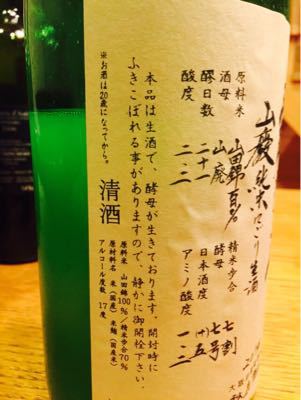 山廃純米にごり生酒
原料米 山田錦百%
精米歩合 七割
酒母 山廃
酵母 七号
醪日数 二十一
日本酒度 (+)五
酸度 二・二
アミノ酸度 一・三
本品は生酒で、酵母が生きております。開封時に
ふきこぼれる事がありますので、静かに御開栓下さい。
※お酒は20歳になってから。
清酒
原料米 山田錦100%/精米歩合70%
原材料名 米(国産)米麹(国産米)
アルコール度数 17度